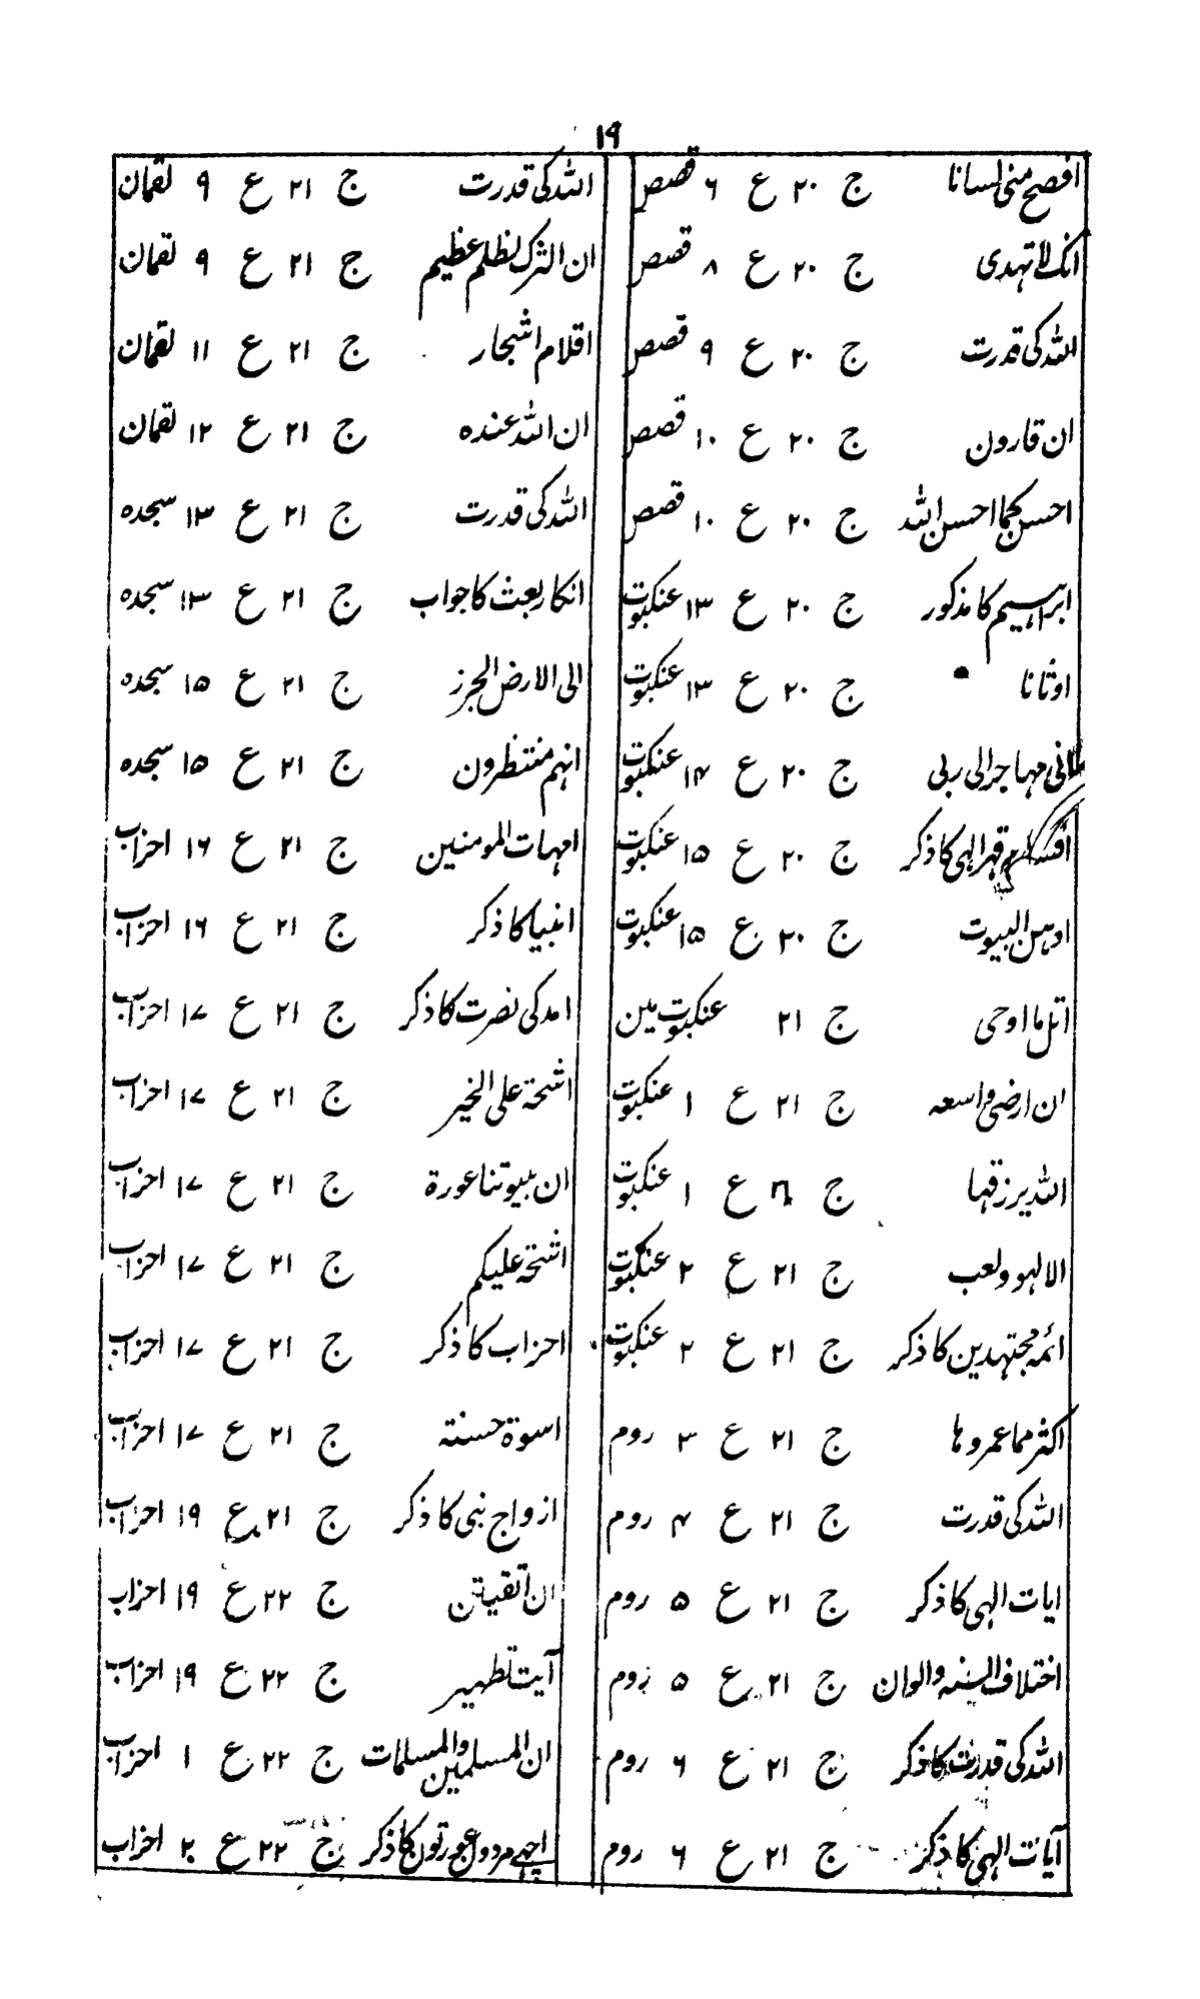 ۱۹
افصح منی لسانا ج ۲۰ ع ۶ قصص
انک لا تہدی ج ۲۰ ع ۸ قصص
اللہ کی قدرت ج ۲۰ ع ۹ قصص
ان قارون ج ۲۰ ع ۱۰ قصص
احسن کما احسن اللہ ج ۲۰ ع ۱۰ قصص
ابراہیم کا مذکور ج ۲۰ ع ۱۳ عنکبوت
اوثانا ج ۲۰ ع ۱۳ عنکبوت
انی مہاجر الی ربی ج ۲۰ ع ۱۴ عنکبوت
قہر الہی کا ذکر ج ۲۰ ع ۱۵ عنکبوت
اوہن البیوت ج ۲۰ ع ۱۵ عنکبوت
اتل ما اوحی ج ۲۱ عنکبوت مین
ان ارضی واسعہ ج ۲۱ ع ۱ عنکبوت
اللہ یرزقہا ج ۲۱ ع ۱ عنکبوت
الا لہو ولعب ج ۲۱ ع ۲ عنکبوت
ائمہ مجتہدین کا ذکر ج ۲۱ ع ۲ عنکبوت
اکثر مما عمروہا ج ۲۱ ع ۳ روم
اللہ کی قدرت ج ۲۱ ع ۴ روم
ایات الہی کا ذکر ج ۲۱ ع ۵ روم
اختلاف السنہ والوان ج ۲۱ ع ۵ روم
اللہ کی قدرت کا ذکر ج ۲۱ ع ۶ روم
آیات الہی کا ذکر ج ۲۱ ع ۶ روم
اللہ کی قدرت ج ۲۱ ع ۹ لقمان
ان الشرک لظلم عظیم ج ۲۱ ع ۹ لقمان
اقلام اشجار ج ۲۱ ع ۱۱ لقمان
ان اللہ عندہ ج ۲۱ ع ۱۲ لقمان
اللہ کی قدرت ج ۲۱ ع ۱۳ سجدہ
انکار بعث کا جواب ج ۲۱ ع ۱۳ سجدہ
الی الارض الجرز ج ۲۱ ع ۱۵ سجدہ
انہم منتظرون ج ۲۱ ع ۱۵ سجدہ
امہات المومنین ج ۲۱ ع ۱۶ احزاب
انبیا کا ذکر ج ۲۱ ع ۱۶ احزاب
امد کی نصرت کا ذکر ج ۲۱ ع ۱۷ احزاب
اشحۃ علی الخیر ج ۲۱ ع ۱۷ احزاب
ان بیوتنا عورۃ ج ۲۱ ع ۱۷ احزاب
اشحۃ علیکم ج ۲۱ ع ۱۷ احزاب
احزاب کا ذکر ج ۲۱ ع ۱۷ احزاب
اسوۃ حسنۃ ج ۲۱ ع ۱۷ احزاب
ازواج نبی کا ذکر ج ۲۱ ع ۱۹ احزاب
ان اتقیتن ج ۲۲ ع ۱۹ احزاب
آیت تطہیر ج ۲۲ ع ۱۹ احزاب
ان المسلمین والمسلمات ج ۲۲ ع ۱ احزاب
اچھے مردوں عورتوں کا ذکر ج ۲۲ ع ۲ احزاب